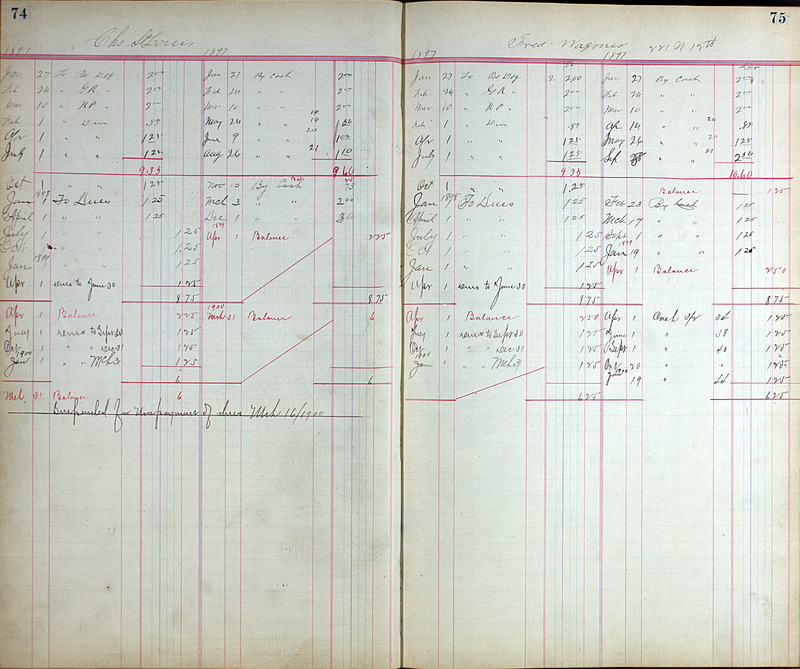 74
Chs St Louis
1897 1897
Jan 27 To Bs Dog 2 00 Jan 27 By Cash 2 00
Feb 24 " GR " 2 00 Feb 24 " " 2 00
Mar 10 " RP " 2 00 Mar 10 " " 2 00
Feb 1 " Dues .85 May 24 " " 19
Apr 1 " " 1 25 June 9 " " 20
July 1 " " 1 25 Aug 26 " " 21 1 10
9.35 9.60
Oct 1 " " 1 25 Nov 10 By Cash 75
Jan 1898 1 To Dues 1 25 Mch 3 " " 2 00
April 1 " " 1 25 Dec 1 " " 3 00
July 1 " " 1 25 1899 Apr 1 Balance 2 25
Oct " " 1.25
Jan 1899 " 1 25
Apr 1 " to June 30 1 25
8 75 8 75
Apr 1 Balance 2 25 1900 Mch 31 Balance 6
July 1 " to Sept 30 1 25
Oct 1 " " Dec 31 1 25
1900 Jan 1 " " Mch 31 1 25
6 6
Mch 31 Balance 6
Suspended for Nonpayment of dues Mch 16/1900
75
Fred Wagoner 221 N 12th
1897 1897
Jan 27 To Bs Dog 2 2.00 Jan 27 By Cash 2 00
Feb 24 " GR " 2 00 Feb 24 " " 2 00
Mar 10 " RP " 2 00 Mar 10 " " 2 00
Feb 1 " Dues .85 Ap 14 " " 20 .85
Apr 1 " " 1 25 May 26 " " 20 1 25
July 1 " " 1 25 Sep 28 " " 21 2 50
9 35 10.60
Oct 1 " " 1.25 Balance 1 25
Jan 1898 1 To Dues 1 25 Feb 23 By Cash 1 25
April 1 " " 1 25 Mch 17 " " 1 25
July 1 " " 1 25 Sept " " 1 25
Oct 1 " " 1 25 1899 Jan 19 " " 1 25
Jan 1 " " 1 25 Apr 1 Balance 2 50
Apr 1 " to June 30 1 25
8 75 8 75
Apr 1 Balance 2 50 Apr 1 Cash 34 1 25
July 1 " to Sept 30 1 25 June 1 " 38 1 25
Oct 1 " " Dec 31 1 25 Sept 1 " 40 1 25
1900 Jan 1 " " Mch 31 1 25 Oct 20 " 1 25
1900 Jan 19 " 44 1 25
6 25 6 25